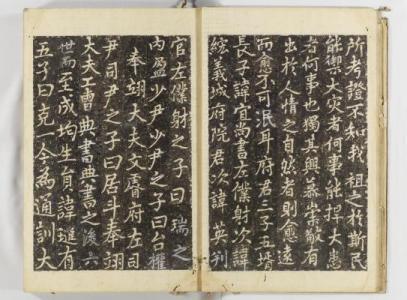 所考證不知我 祖之於斯民
能禦大灾者何事能捍大患
者何事也獨其興慕崇敬有
出於人情之自然者則愈遠
而愈不可泯耳府君二子五壻
長子諱宜尚書左僕射次諱
絃義城府院君次諱 英判
官左僕射之子曰 瑞之
內盈少尹少尹之子曰台權
奉翊大夫文睿府左司
尹司尹之子曰居斗奉翊
大夫工曹典書典書之後六
世而至成均生員諱璡有
五子曰克一今為通訓大